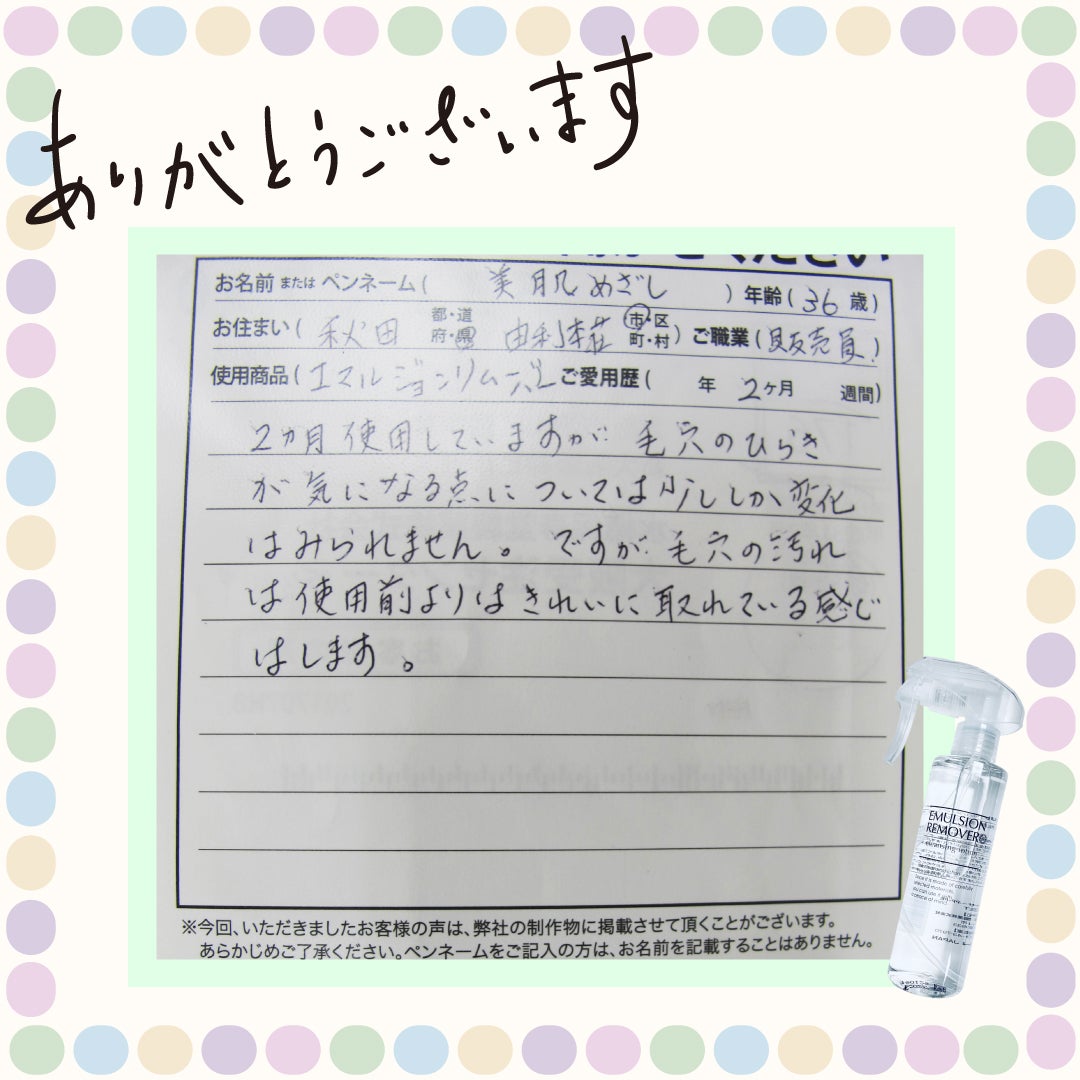 ありがとうございます
お名前 または ペンネーム( 美肌めざし )年齢( 36 歳)
お住まい( 秋田 都・道府・県 由利本荘 市・区町・村 )ご職業( 販売員 )
使用商品( エマルジョンリムーバー ご愛用歴( 年 2ヶ月 週間)
2ヵ月使用していますが 毛穴のひらき
が気になる点については少ししか変化
はみられません。ですが毛穴の汚れ
は使用前よりはきれいに取れている感じ
はします。
※今回、いただきましたお客様の声は、弊社の制作物に掲載させて頂くことがございます。
あらかじめご了承ください。ペンネームをご記入の方は、お名前を記載することはありません。
EMULSION
REMOVER
cleansing lotion